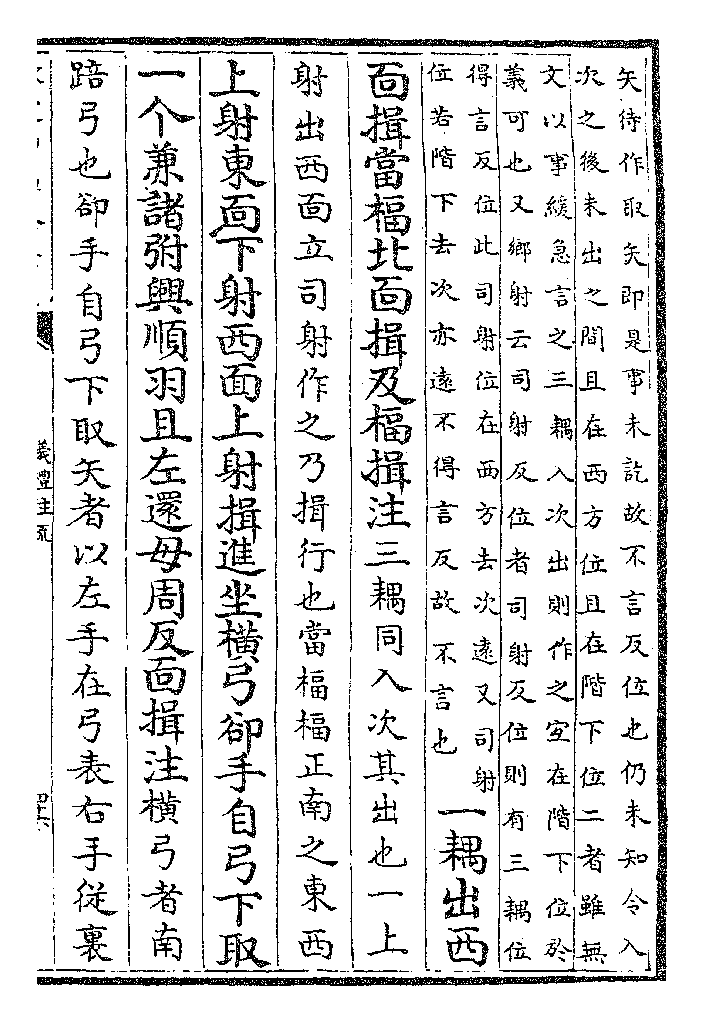 矢待作取矢即是事未訖故不言反位也仍未知令入
次之後未出之間且在西方位且在階下位二者雖無
文以事緩急言之三耦入次出則作之宐在階下位於
義可也又鄉射云司射反位者司射反位則有三耦位
得言反位此司射位在西方去次遠又司射
位若階下去次亦遠不得言反故不言也
一耦出西
面揖當楅北面揖及楅揖注三耦同入次其出也一上
射出西面立司射作之乃揖行也當楅楅正南之東西
上射東面下射西面上射揖進坐橫弓卻手自弓下取
一个兼諸弣興順羽且左還毋周反面揖注橫弓者南
踣弓也卻手自弓下取矢者以左手在弓表右手從裏
儀禮注疏